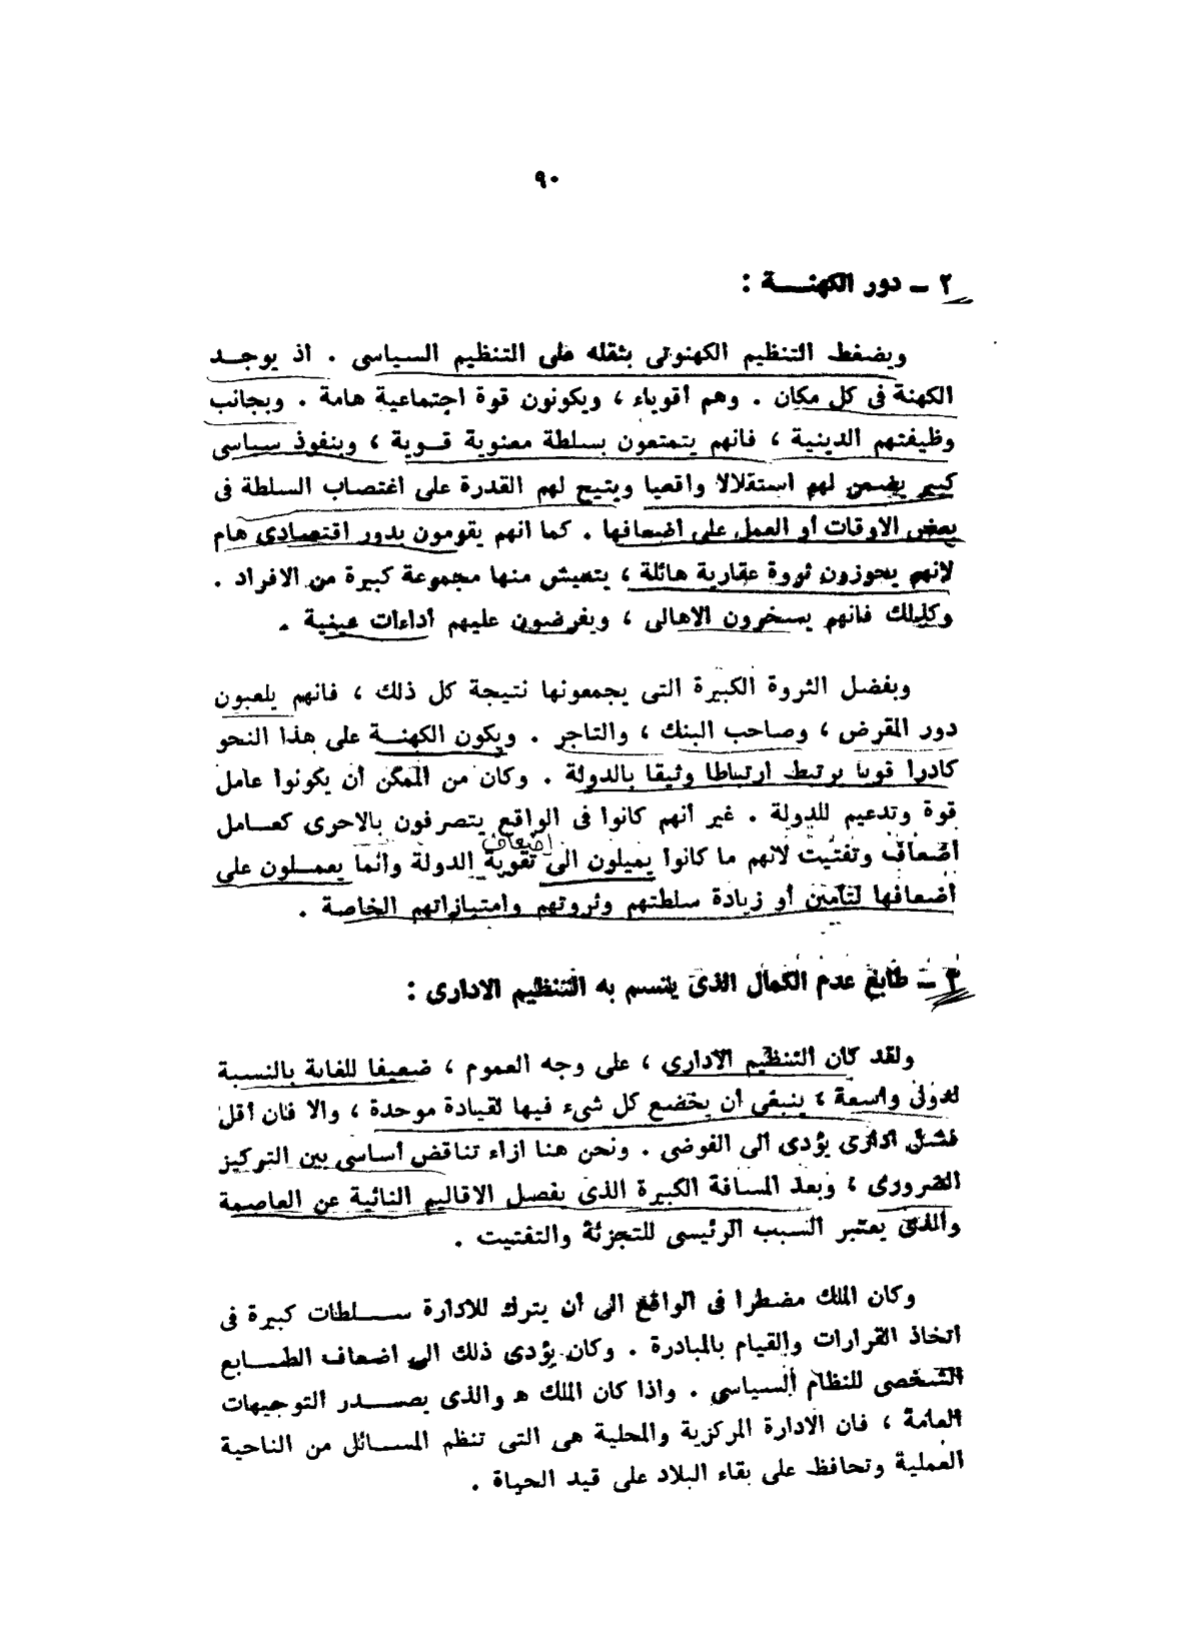 ٩٠
٢ ــ دور الكهنـــــة :
ويضغط التنظيم الكهنوتى بثقله على التنظيم السياسى . اذ يوجــد
الكهنة فى كل مكان . وهم أقوياء ، ويكونون قوة اجتماعية هامة . وبجانب
وظيفتهم الدينية ، فانهم يتمتعون بسلطة معنوية قــوية ، وبنفوذ سياسى
كبير يضمن لهم استقلالا واقعيا ويتيح لهم القدرة على اغتصاب السلطة فى
بعض الاوقات أو العمل على اضعافها . كما انهم يقومون بدور اقتصادى هام
لانهم يحوزون ثروة عقارية هائلة ، يتعيش منها مجموعة كبيرة من الافراد .
وكذلك فانهم يسخرون الاهالى ، ويفرضون عليهم أداءات عينية .
وبفضل الثروة الكبيرة التى يجمعونها نتيجة كل ذلك ، فانهم يلعبون
دور المقرض ، وصاحب البنك ، والتاجر . ويكون الكهنــة على هذا النحو
كادرا قويا يرتبط ارتباطا وثيقا بالدولة . وكان من الممكن أن يكونوا عامل
قوة وتدعيم للدولة . غير أنهم كانوا فى الواقع يتصرفون بالاحرى كعــامل
اضعاف
اضعاف وتفتيت لانهم ما كانوا يميلون الى تقوية الدولة وانما يعمــلون على
أضعافها لتأمين أو زيادة سلطتهم وثروتهم وامتيازاتهم الخاصة .
٣ ــ طابع عدم الكمال الذى يتسم به التنظيم الادارى :
ولقد كان التنظيم الادارى ، على وجه العموم ، ضعيفا للغاية بالنسبة
لدولى واسعة ، ينبغى أن يخضع كل شىء فيها لقيادة موحدة ، والا فان أقل
فشل ادارى يؤدى الى الفوضى . ونحن هنا ازاء تناقض أساسى بين التركيز
الضرورى ، وبعد المسافة الكبيرة الذى يفصل الاقاليم النائية عن العاصمة
والذى يعتبر السبب الرئيسى للتجزئة والتفتيت .
وكان الملك مضطرا فى الواقع الى أن يترك للادارة ســـلطات كبيرة فى
اتخاذ القرارات والقيام بالمبادرة . وكان يؤدى ذلك الى اضعاف الطـــابع
الشخصى للنظام السياسي . واذا كان الملك هـ والذى يصـــدر التوجيهات
العامة ، فان الادارة المركزية والمحلية هى التى تنظم المســائل من الناحية
العملية وتحافظ على بقاء البلاد على قيد الحياة .